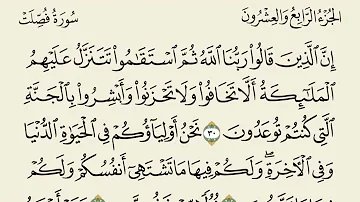 الجزء الرابع والعشرون
سورة فصلت
إِنَّ الَّذِينَ قَالُوا رَبُّنَا اللَّهُ ثُمَّ اسْتَقَامُوا تَتَنَزَّلُ عَلَيْهِمُ
الْمَلَائِكَةُ أَلَّا تَخَافُوا وَلَا تَحْزَنُوا وَأَبْشِرُوا بِالْجَنَّةِ
الَّتِي كُنتُمْ تُوعَدُونَ ٣٠ نَحْنُ أَوْلِيَاؤُكُمْ فِي الْحَيَاةِ الدُّنْيَا
وَفِي الْآخِرَةِ ۖ وَلَكُمْ فِيهَا مَا تَشْتَهِي أَنفُسُكُمْ وَلَكُمْ